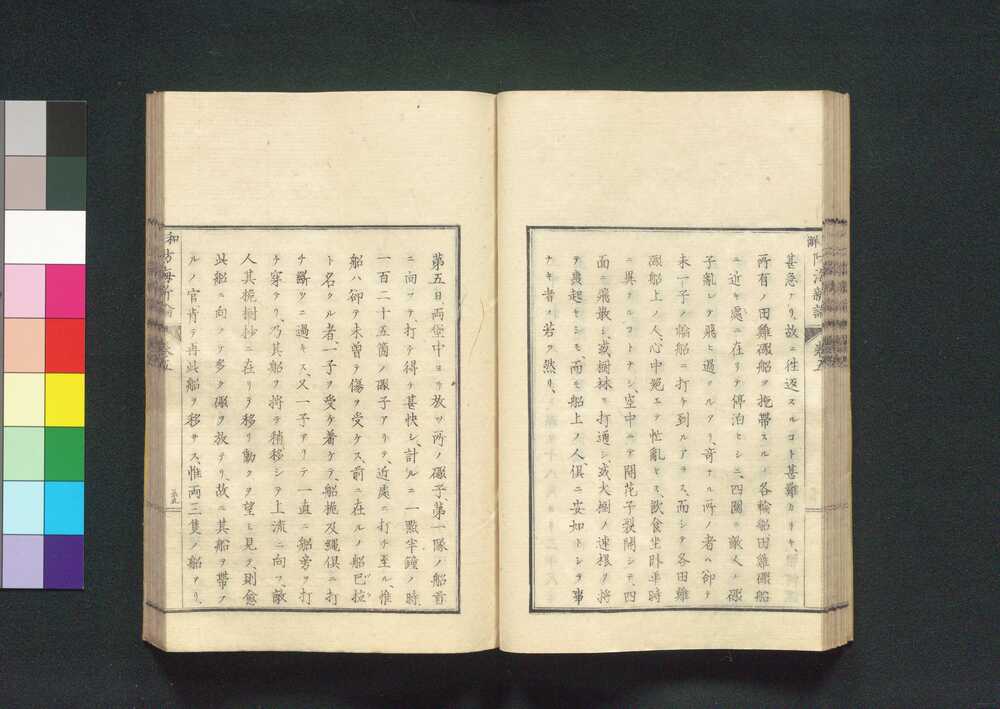 甚急ナリ、故ニ往返スルコト甚難カリキ、
所有ノ田雞礮船ヲ拖帶スルノ各輪船田雞礮船
ニ近キ處ニ在リテ停泊セシニ、四圍ニ敵人ノ礮
子亂レテ飛ヒ過クルアリ、奇ナル所ノ者ハ卻テ
未一子ノ輪船ニ打チ到ルアラス、而シテ各田雞
礮船上ノ人、心中絶エテ忙亂セス、飲食坐臥平時
ニ異ナルコトナシ、空中ニテ開花子裂開シテ、四
面ニ飛散シ或樹林ヲ打通シ、或大樹ノ連根ヲ將
テ轟起セシモ、而モ船上ノ人俱ニ安如トシテ事
ナキ者ノ若ク然リ、
第五日、兩堡中ヨリ放ツ所ノ礮子、第一隊ノ船首
ニ向フテ、打チ得テ甚快シ、計ルニ一點半鐘ノ時、
一百二十五箇ノ礮子アリテ、近處ニ打チ至ル、惟
船ハ卻テ未曾テ傷ヲ受ケス、前ニ在ルノ船巴拉
ト名クル者、一子ヲ受ケ着ケテ、船桅及繩俱ニ打
チ斷ツニ過キス、又一子アリテ一直ニ船旁ヲ打
チ穿タリ、乃其船ヲ將テ稍移シテ上流ニ向フ、敵
人其桅樹抄ニ在リテ移リ動クヲ望ミ見テ、則愈
此船ニ向ノテ多ク礮ヲ放テリ、故ニ其船ヲ帶フ
ルノ官肯テ再此船ヲ移サス、惟兩三隻ノ船アリ、